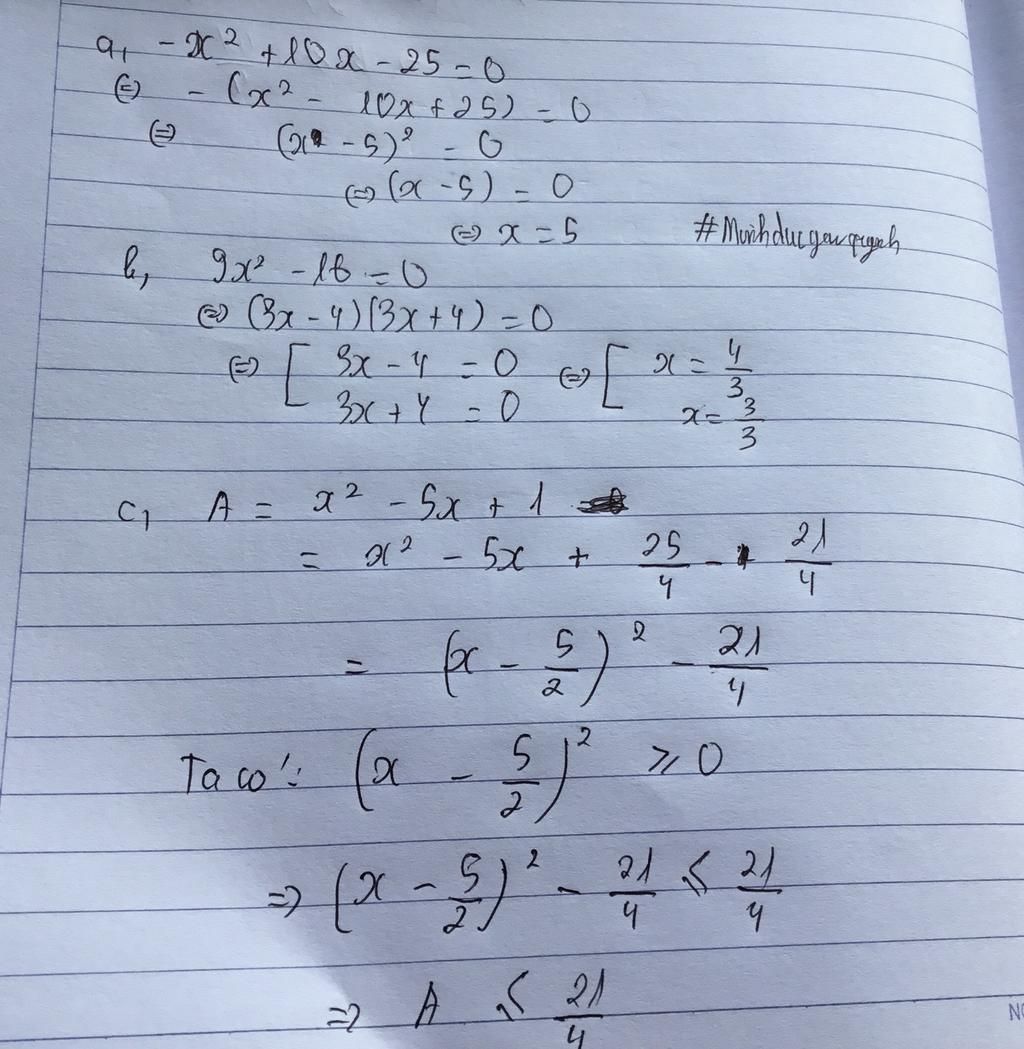 a, -x² + 10x - 25 = 0
⇔ - (x² - 10x + 25) = 0
⇔ (x - 5)² = 0
⇔ (x - 5) = 0
⇔ x = 5
b, 9x² - 16 = 0
⇔ (3x - 4)(3x + 4) = 0
⇔ [ 3x - 4 = 0 ⇔ [ x = 4/3
3x + 4 = 0 x = 3/3
c, A = x² - 5x + 1
= x² - 5x + 25/4 - 21/4
= (x - 5/2)² - 21/4
Ta có: (x - 5/2)² ≥ 0
⇒ (x - 5/2)² - 21/4 ≤ 21/4
⇒ A ≤ 21/4